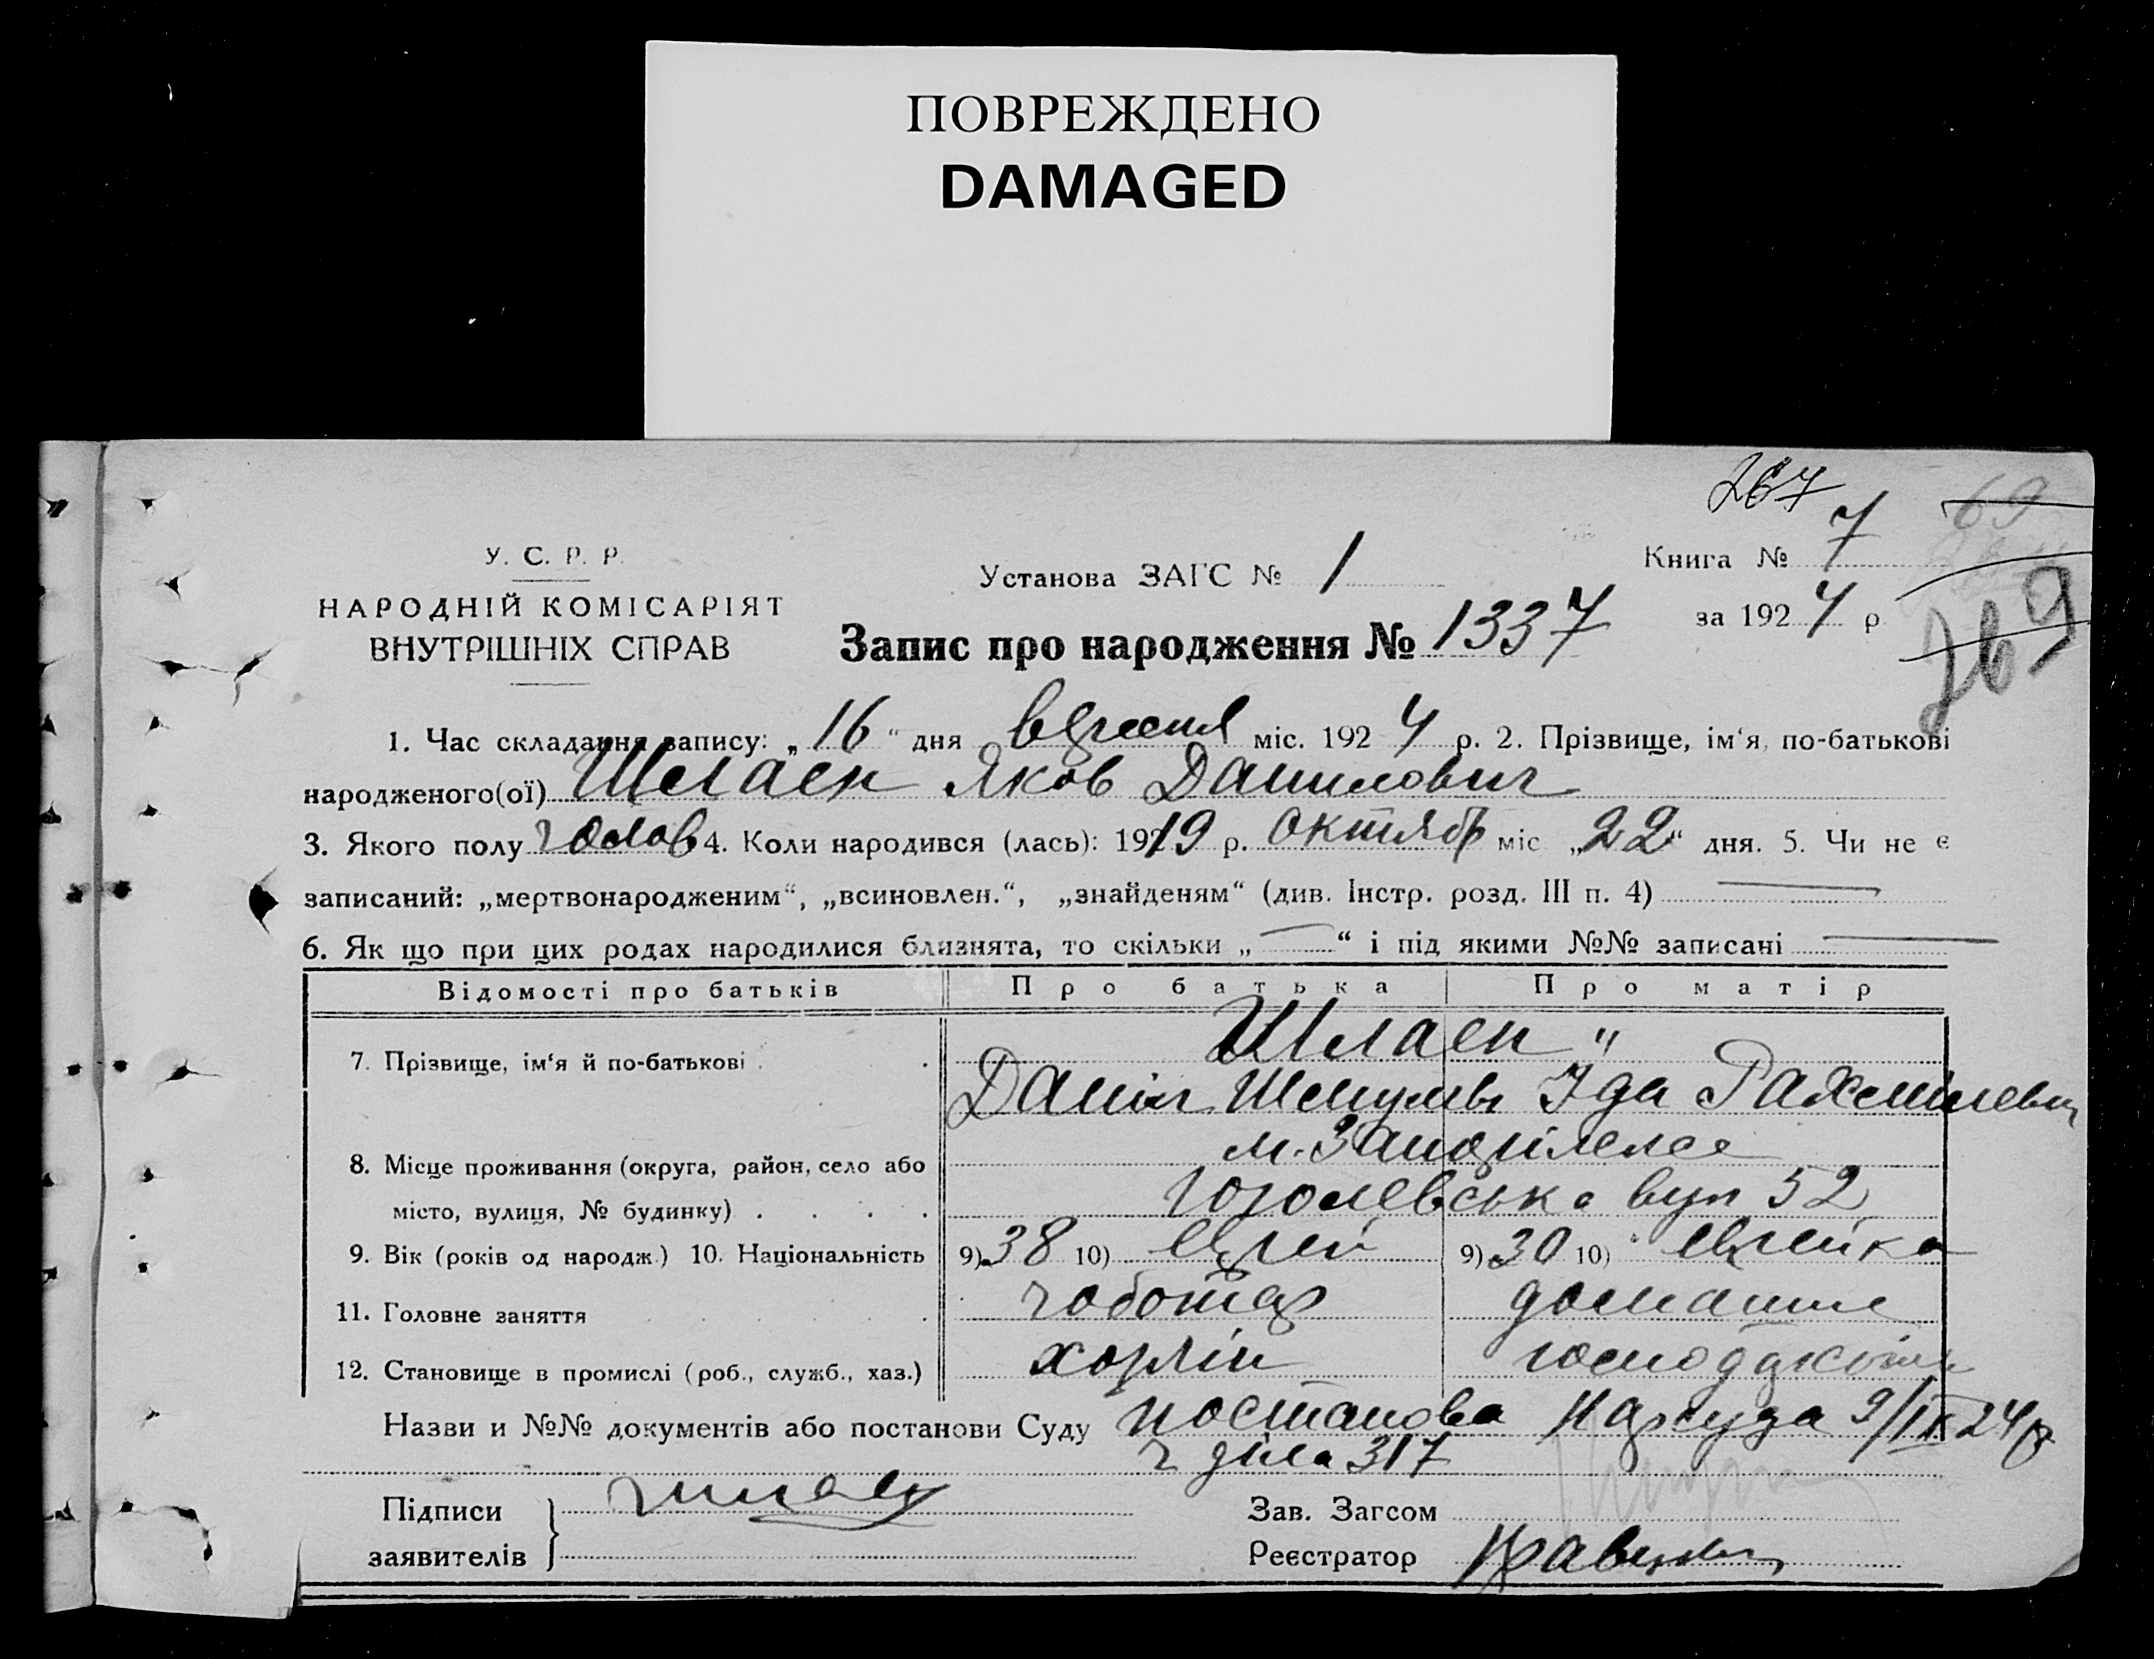 ПОВРЕЖДЕНО
DAMAGED
267
69
У. С. Р. Р.
Установа ЗАГС № 1
Книга № 7
НАРОДНІЙ КОМІСАРІЯТ
за 1924 р
269
ВНУТРІШНІХ СПРАВ
Запис про народження № 1337
1. Час складання запису: „16“ дня вересня міс. 1924 р. 2. Прізвище, ім‘я, по-батькові
народженого(ої) Шлаен Яков Данилович
3. Якого полу чолов 4. Коли народився (лась): 1919 р. октябр міс „22“ дня. 5. Чи не є
записаний: „мертвонародженим“, „всиновлен.“, „знайденям“ (див. Інстр. розд. III п. 4)
6. Як що при цих родах народилися близнята, то скільки „ “ і під якими №№ записані
Відомості про батьків Про батька Про матір
Шлаен "
7. Прізвище, ім‘я й по-батькові
Даніл Шмулев Іда Рахмілевн
м. Запоріжже
8. Місце проживання (округа, район, село або
місто, вулиця, № будинку) Гоголевська вул 52
9. Вік (років од народж.) 10. Національність 9) 38 10) еврей 9) 30 10) еврейка
11. Головне заняття чоботар домашне
12. Становище в промислі (роб., служб., хаз.) господарство
Назви и №№ документів або постанови Суду постанова Нарсуда 9/IX 24 р
ч діла 317
Підписи
Зав. Загсом
заявителів
Реєстратор